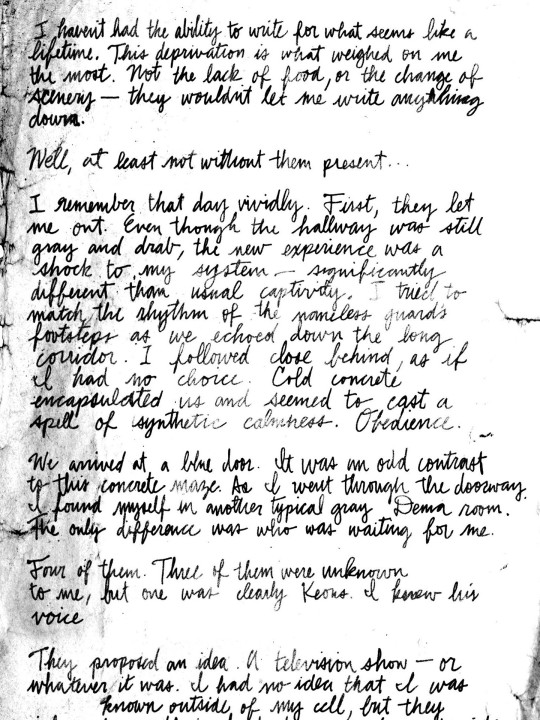 I haven't had the ability to write for what seems like a
lifetime. This deprivation is what weighed on me
the most. Not the lack of food, or the change of
scenery — they wouldn't let me write anything
down.
Well, at least not without them present...
I remember that day vividly. First, they let
me out. Even though the hallway was still
gray and drab, the new experience was a
shock to my system — significantly
different than usual captivity. I tried to
match the rhythm of the nameless guard's
footsteps as we echoed down the long
corridor. I followed close behind, as if
I had no choice. Cold concrete
encapsulated us and seemed to cast a
spell of synthetic calmness. Obedience.
We arrived at a blue door. It was an odd contrast
to this concrete maze. As I went through the doorway,
I found myself in another typical gray Dema room.
The only difference was who was waiting for me.
Four of them. Three of them were unknown
to me, but one was clearly Keons. I knew his
voice
They proposed an idea. A television show — or
whatever it was. I had no idea that I was
known outside of my cell, but they